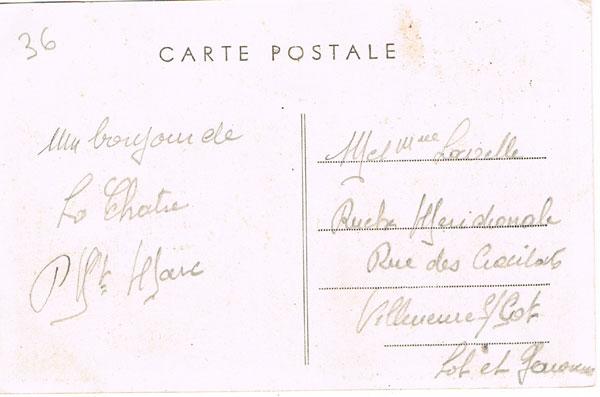 36
CARTE POSTALE
Un bonjour de
La Chatre
P St Marc
M et Mme
Ruche Méridionale
Rue des
Villeneuve s/Lot
Lot et Garonne